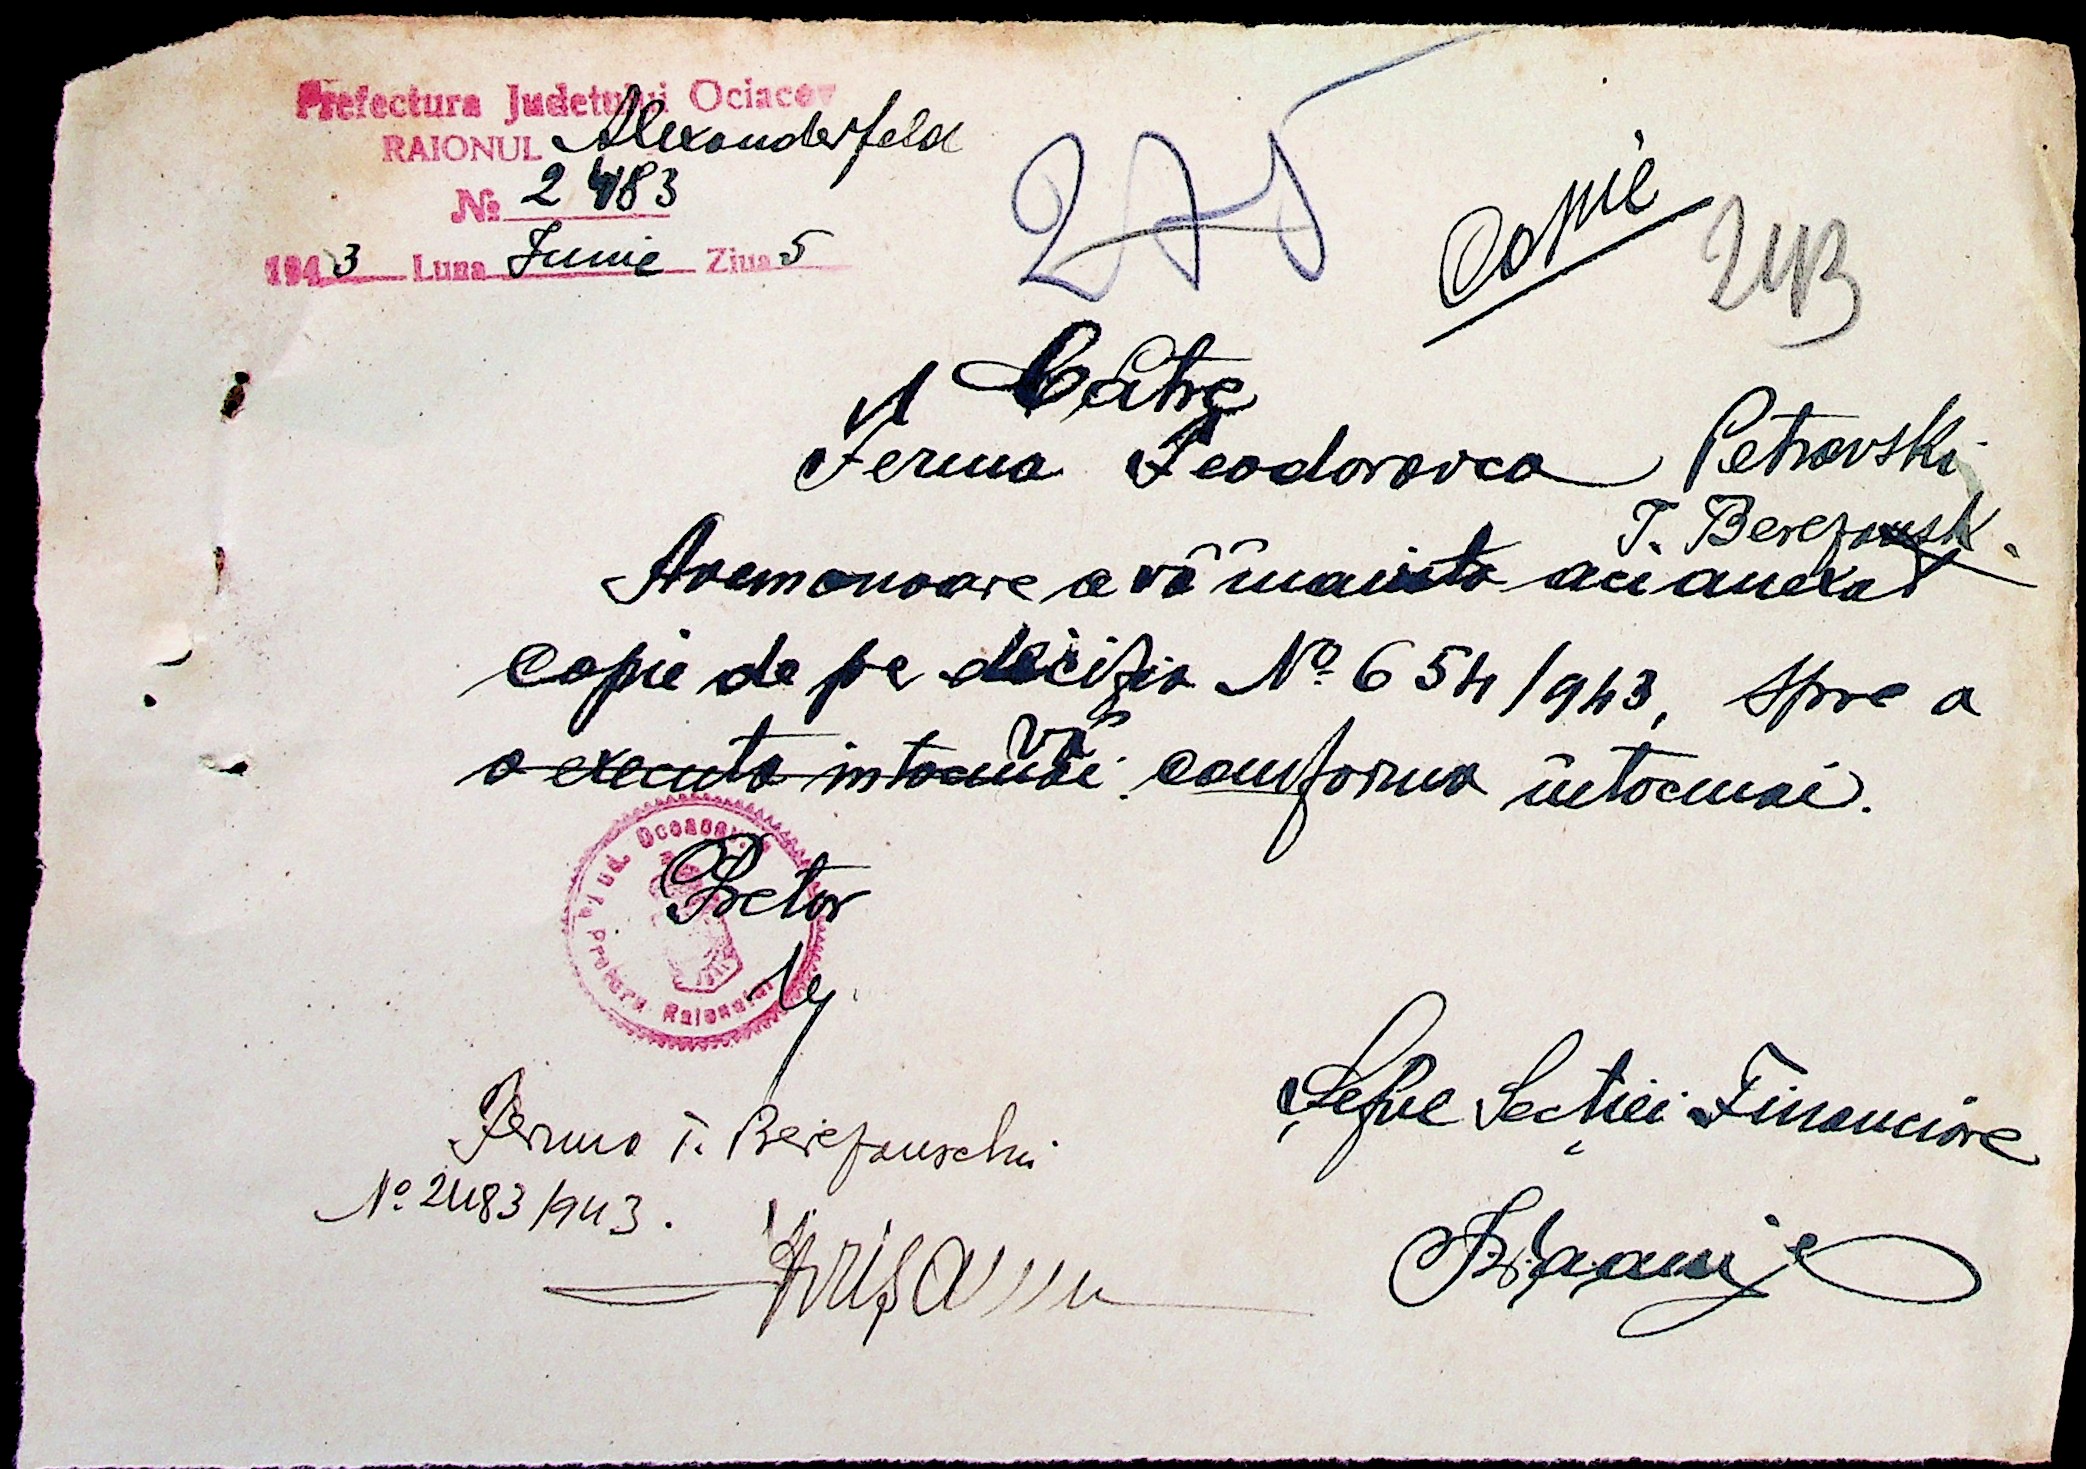 Prefectura Județului Ociacov
RAIONUL Alexanderfeld
№ 2483
1943 Luna Iunie Ziua 5
275
Copie
243
Către
Ferma Feodorovca Petrovski
T. Berezovsk.
Avem onoare a vă înainta aci anexat
copie de pe decizia No 654/943, spre a
o executa intocmai. vă conforma intocmai.
Pretor
Jud. Oceacov
Pretura Raionului
Șeful Secției Financiare
Ferma T. Berezanschi
No. 2483/943.